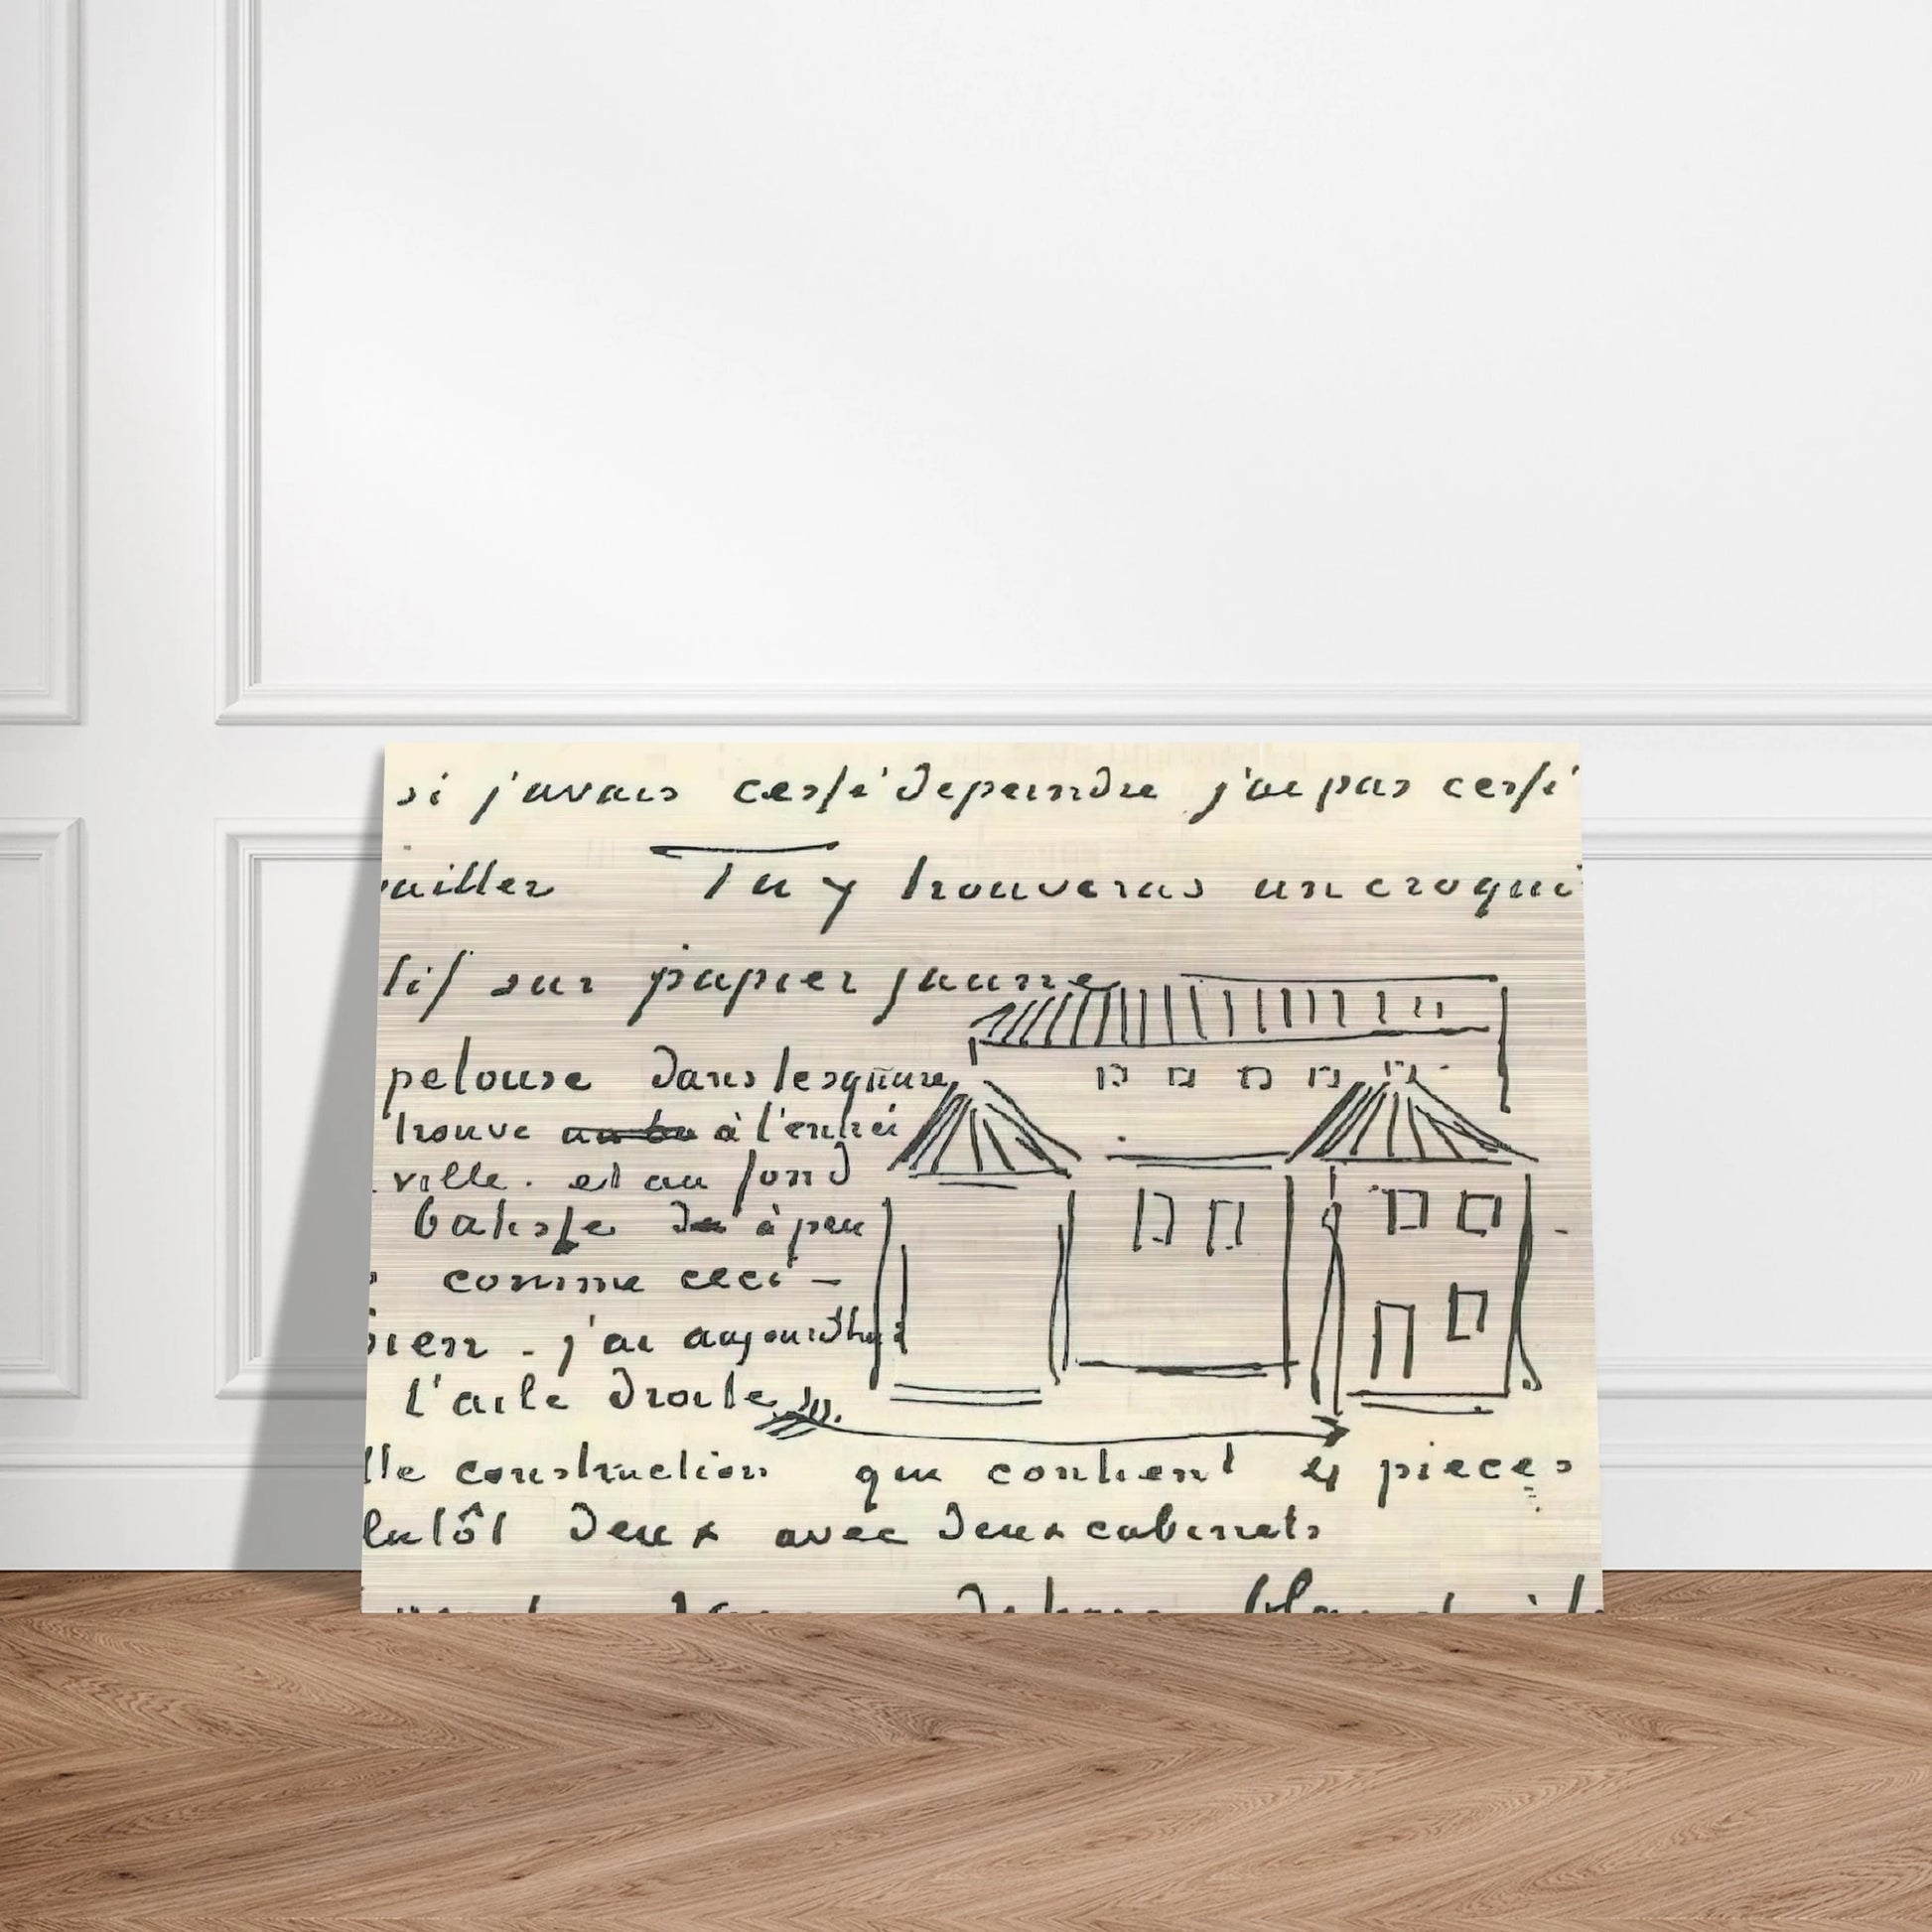 si j'avais cessé de peindre j'ai pas cessé
vailler Tu y trouveras un croqui
tif sur papier jaune
pelouse dans le square
trouve à l'entréé
ville. et au fond
batisse à peu
comme ceci –
bien - j'ai aujourdhui
l'aile droite
tte construction qui contient 4 pieces
lutôt deux avec deux cabinets